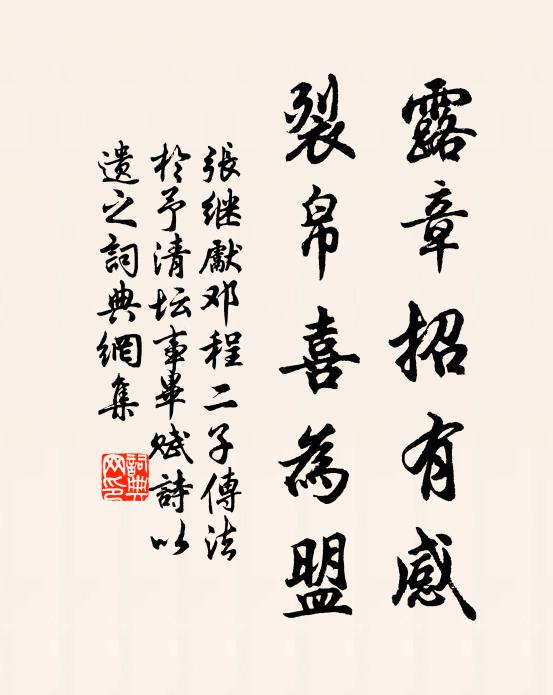 露章招有感
裂帛喜為盟
張继獻邓程二子傳法
於予清坛事畢賦詩以
遺之詞典網集
詞典网印